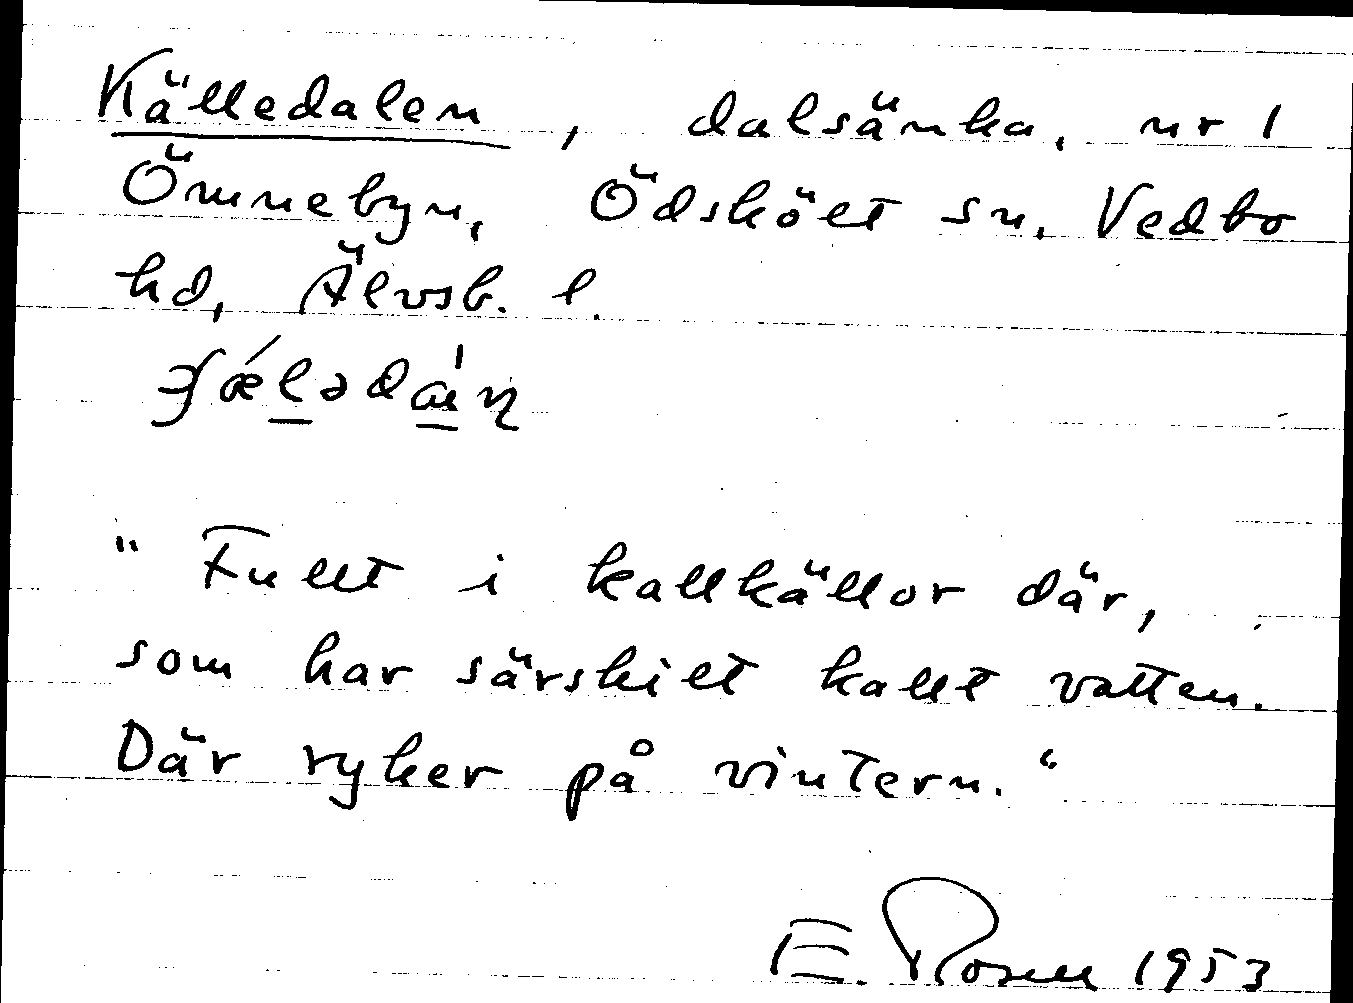 Källedalen, dalsänka, nr 1
Ömmebyn, Ödskölt sn, Vedbo
hd, Älvsb. l.
"Fullt i kallkällor där,
som har särskilt kallt vatten.
Där ryker på vintern."
E. Rosell 1953